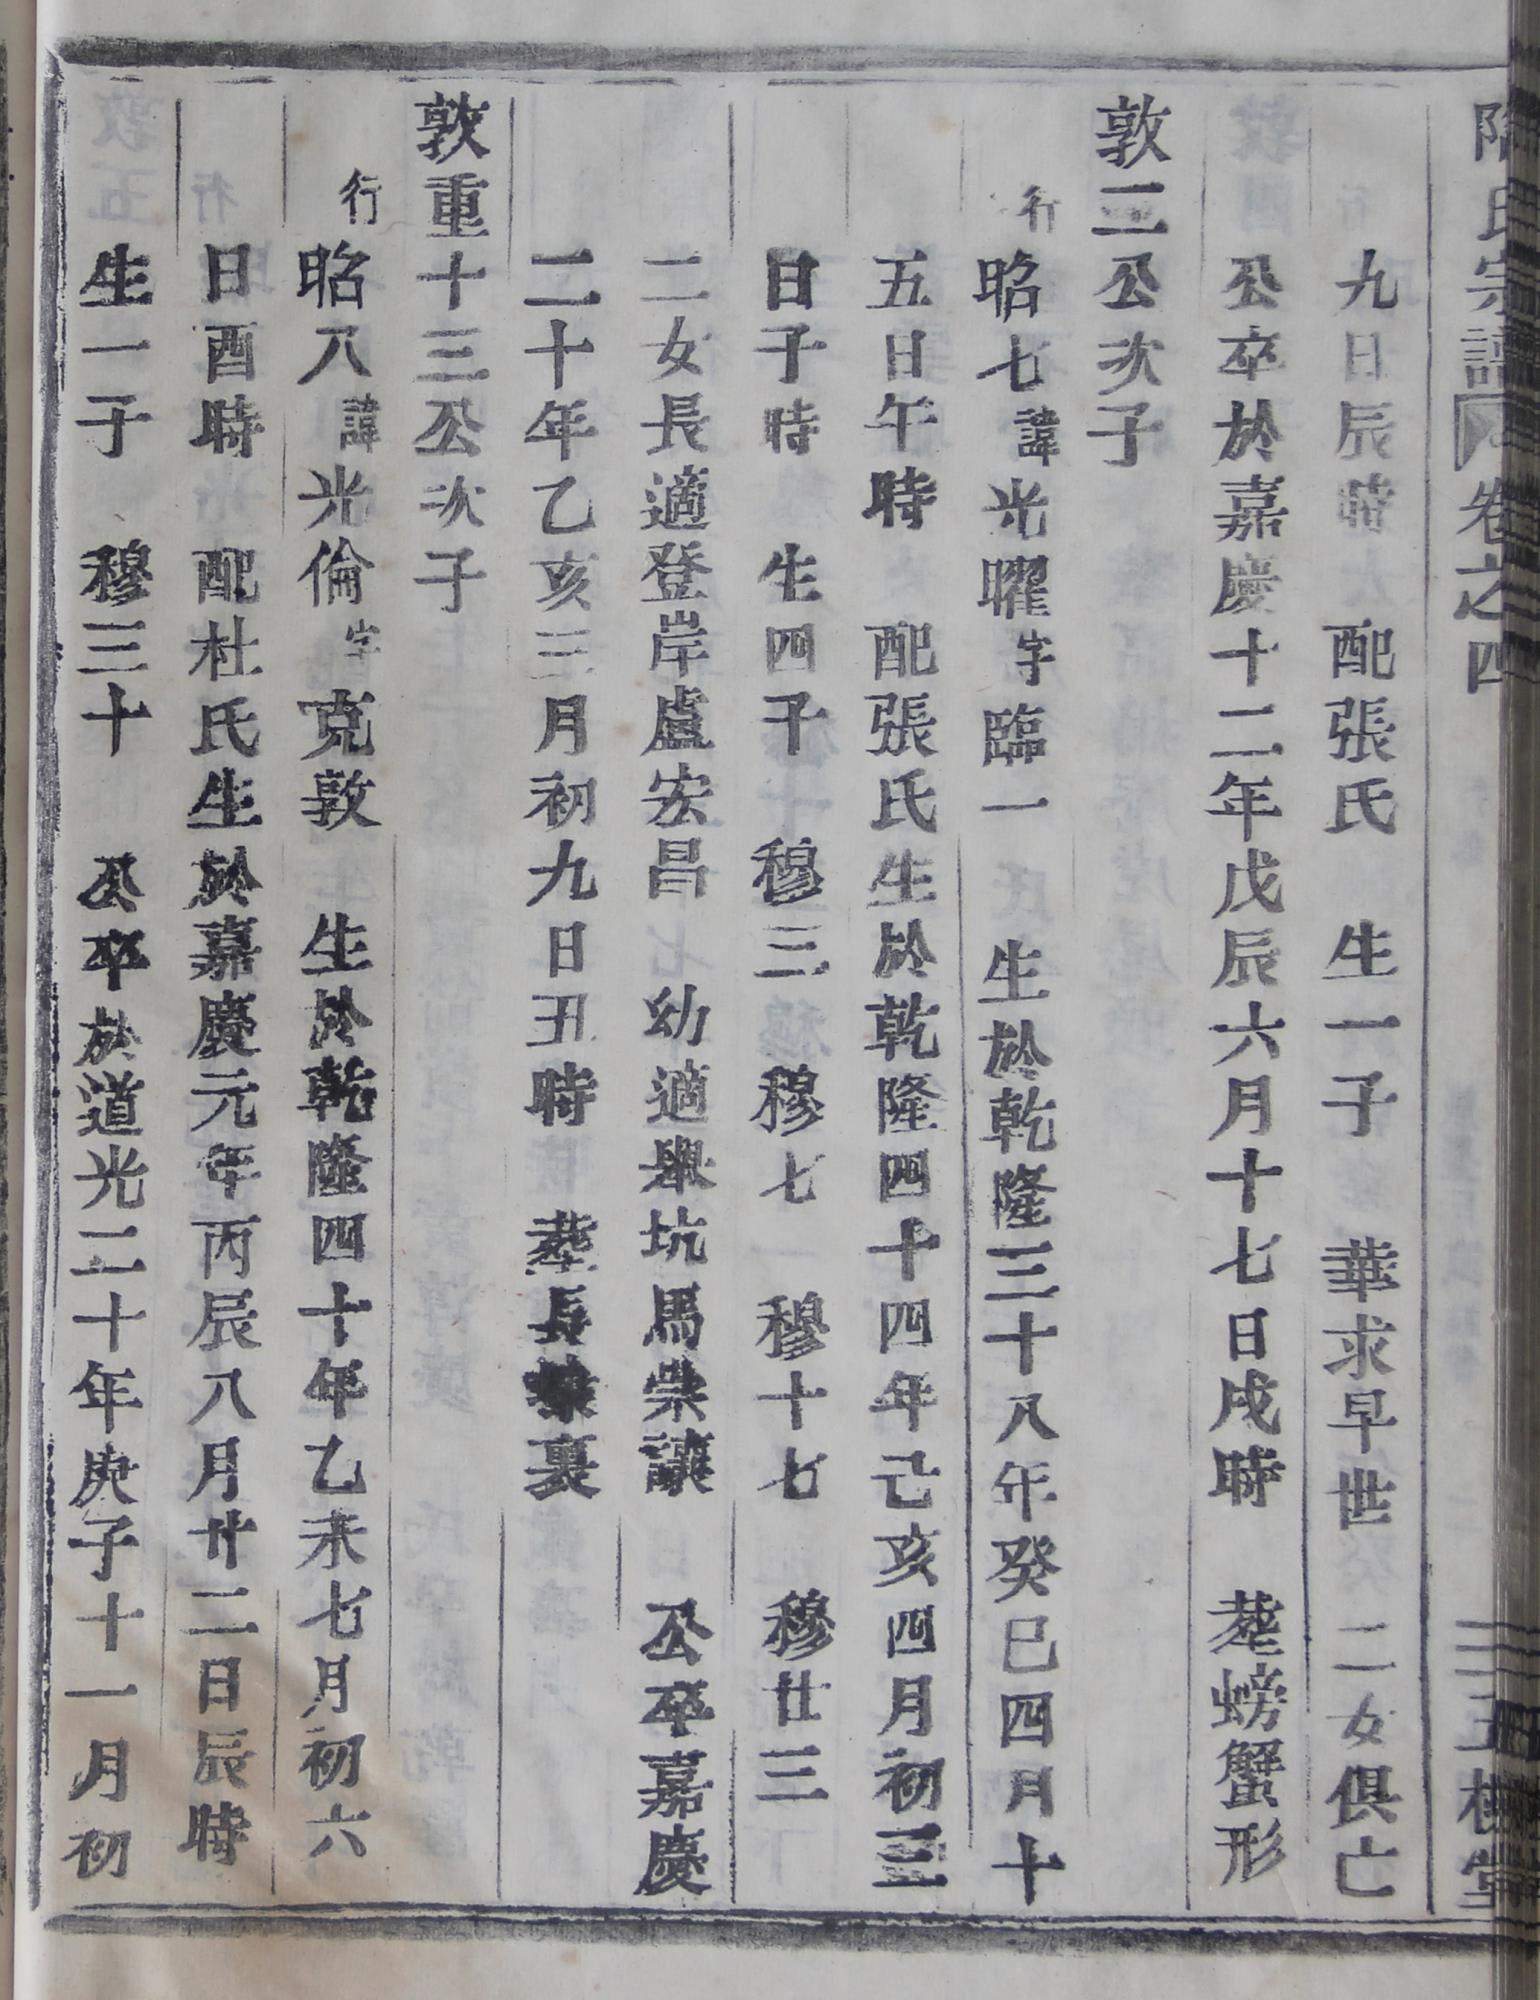 氏宗譜 卷之四
九日辰時 配張氏 生一子 華求早世 二女俱亡
公卒於嘉慶十二年戊辰六月十七日戌時 塟螃蟹形
敦三公次子
行昭七諱光曜字臨一 生於乾隆三十八年癸巳四月十
五日午時 配張氏生於乾隆四十四年己亥四月初三
日子時 生四子 穆三 穆七 穆十七 穆廿三
二女長適登岸盧宏昌 幼適舉坑馬崇讓 公卒嘉慶
二十年乙亥三月初九日丑時 塟長裏
敦重十三公次子
行昭八諱光倫字克敦 生於乾隆四十年乙未七月初六
日酉時 配杜氏生於嘉慶元年丙辰八月廿二日辰時
生一子 穆三十 公卒於道光二十年庚子十一月初